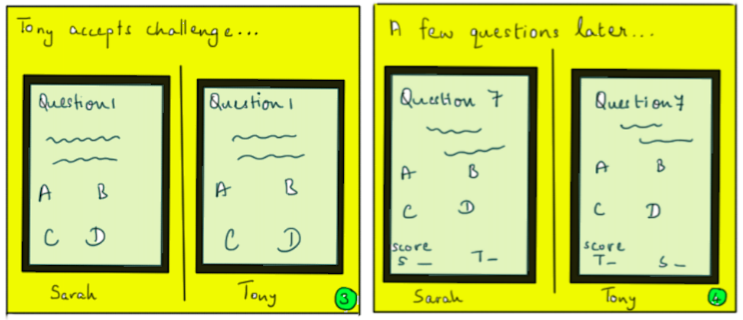 Tony accepts challenge...
Question 1
A B
C D
Sarah
Question 1
A B
C D
Tony
3
A few questions later...
Question 7
A B
C D
score
S _ T _
Sarah
Question 7
A B
C D
score
T _ S _
Tony
4